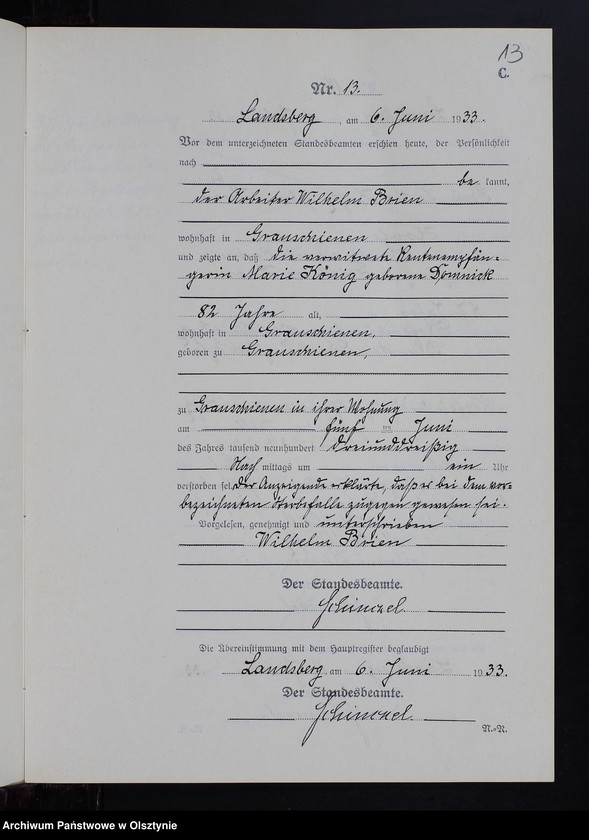 13
C.
Nr. 13.
Landsberg, am 6. Juni 1933.
Vor dem unterzeichneten Standesbeamten erschien heute, der Persönlichkeit
nach
be kannt,
der Arbeiter Wilhelm Brien
wohnhaft in Grauschienen
und zeigte an, daß die verwitwete Rentenempfän-
gerin Marie König geborene Domnick
82 Jahre alt,
wohnhaft in Grauschienen,
geboren zu Grauschienen,
zu Grauschienen in ihrer Wohnung
am fünf ten Juni
des Jahres tausend neunhundert dreiunddreißig
Nach mittags um ein Uhr
verstorben sei. Der Anzeigende erklärte, daß er bei dem vor-
bezeichneten Sterbefalle zugegen gewesen sei.
Vorgelesen, genehmigt und unterschrieben
Wilhelm Brien
Der Standesbeamte.
Schinczel
Die Übereinstimmung mit dem Hauptregister beglaubigt
Landsberg, am 6. Juni 1933.
Der Standesbeamte.
Schinczel.
Archiwum Państwowe w Olsztynie